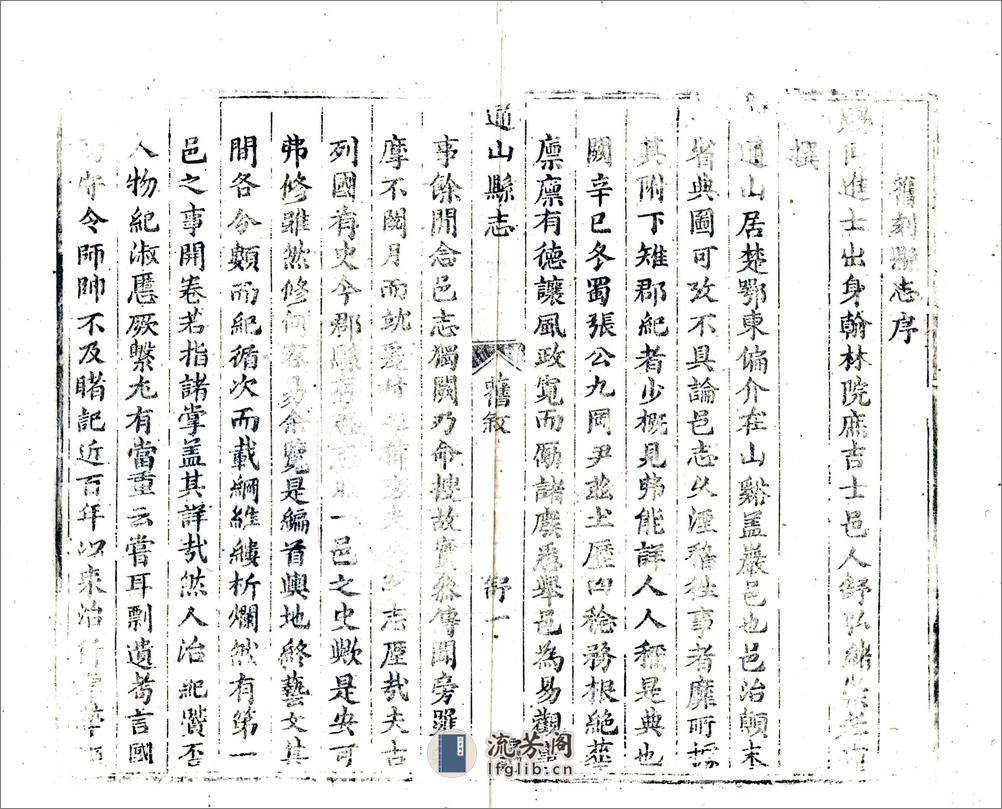 舊刻縣志序
賜同進士出身翰林院庶吉士邑人舒弘緒
撰
通山居楚鄂東偏介在山谿蓋巖邑也邑治顛末
省典圖可攷不具論邑志久湮稽往事者靡所
其附下雉郡紀者少概見弗能詳人人稱是典也
闕辛巳冬蜀張公九岡尹茲土歷曰稔務根絶
廪廪有德讓風政寬而勵諸廢悉舉邑為易觀
通山縣志
舊敘
舒一
事餘閒念邑志獨闕乃命搜故實叅傳聞旁羅
摩不閱月而
志歷哉夫古
列國有史今郡縣有 一邑之史歟是安可
弗修雖然修何容易余覽是編首輿地終藝文其
間各分類而紀循次而載綱維縷析爛然有第一
邑之事開卷若指諸掌盖其詳哉然人治紀贊否
人物紀淑慝厥繫尤有當重云嘗耳剽遺耇言國
守令師帥不及睹記近百年以來治行
流芳阁
lfglib.cn